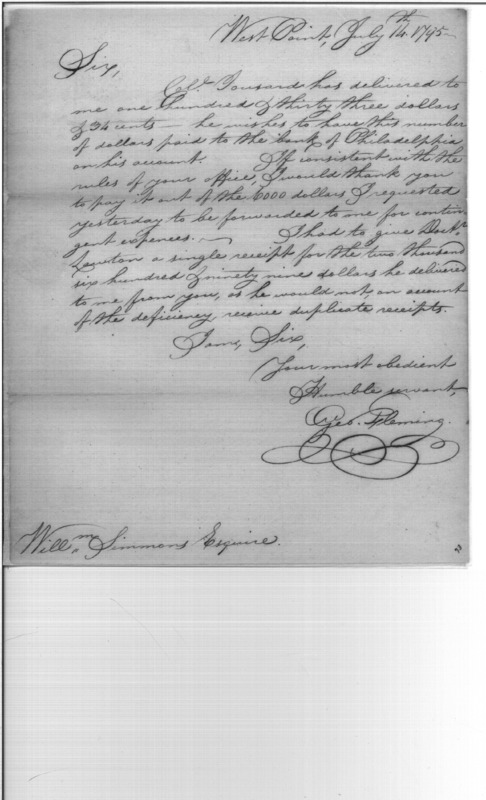 West Point, July 14th 1795
Sir,
Col.o Tousard has delivered to
me one hundred & thirty three dollars
& 34 cents — he wishes to have this number
of dollars paid to the bank of Philadelphia
on his account. If consistent with the
rules of your office, I would thank you
to pay it out of the 6000 dollars I requested
yesterday to be forwarded to me for contin-
gent expences. — I had to give Doctr
Lawton a single receipt for the two thousand
six hundred & ninety nine dollars he delivered
to me from you, as he would not, on account
of the deficiency, receive duplicate receipts.
I am, Sir,
Your most obedient
Humble servant,
Geo. Fleming.
Willm Simmons Esquire.